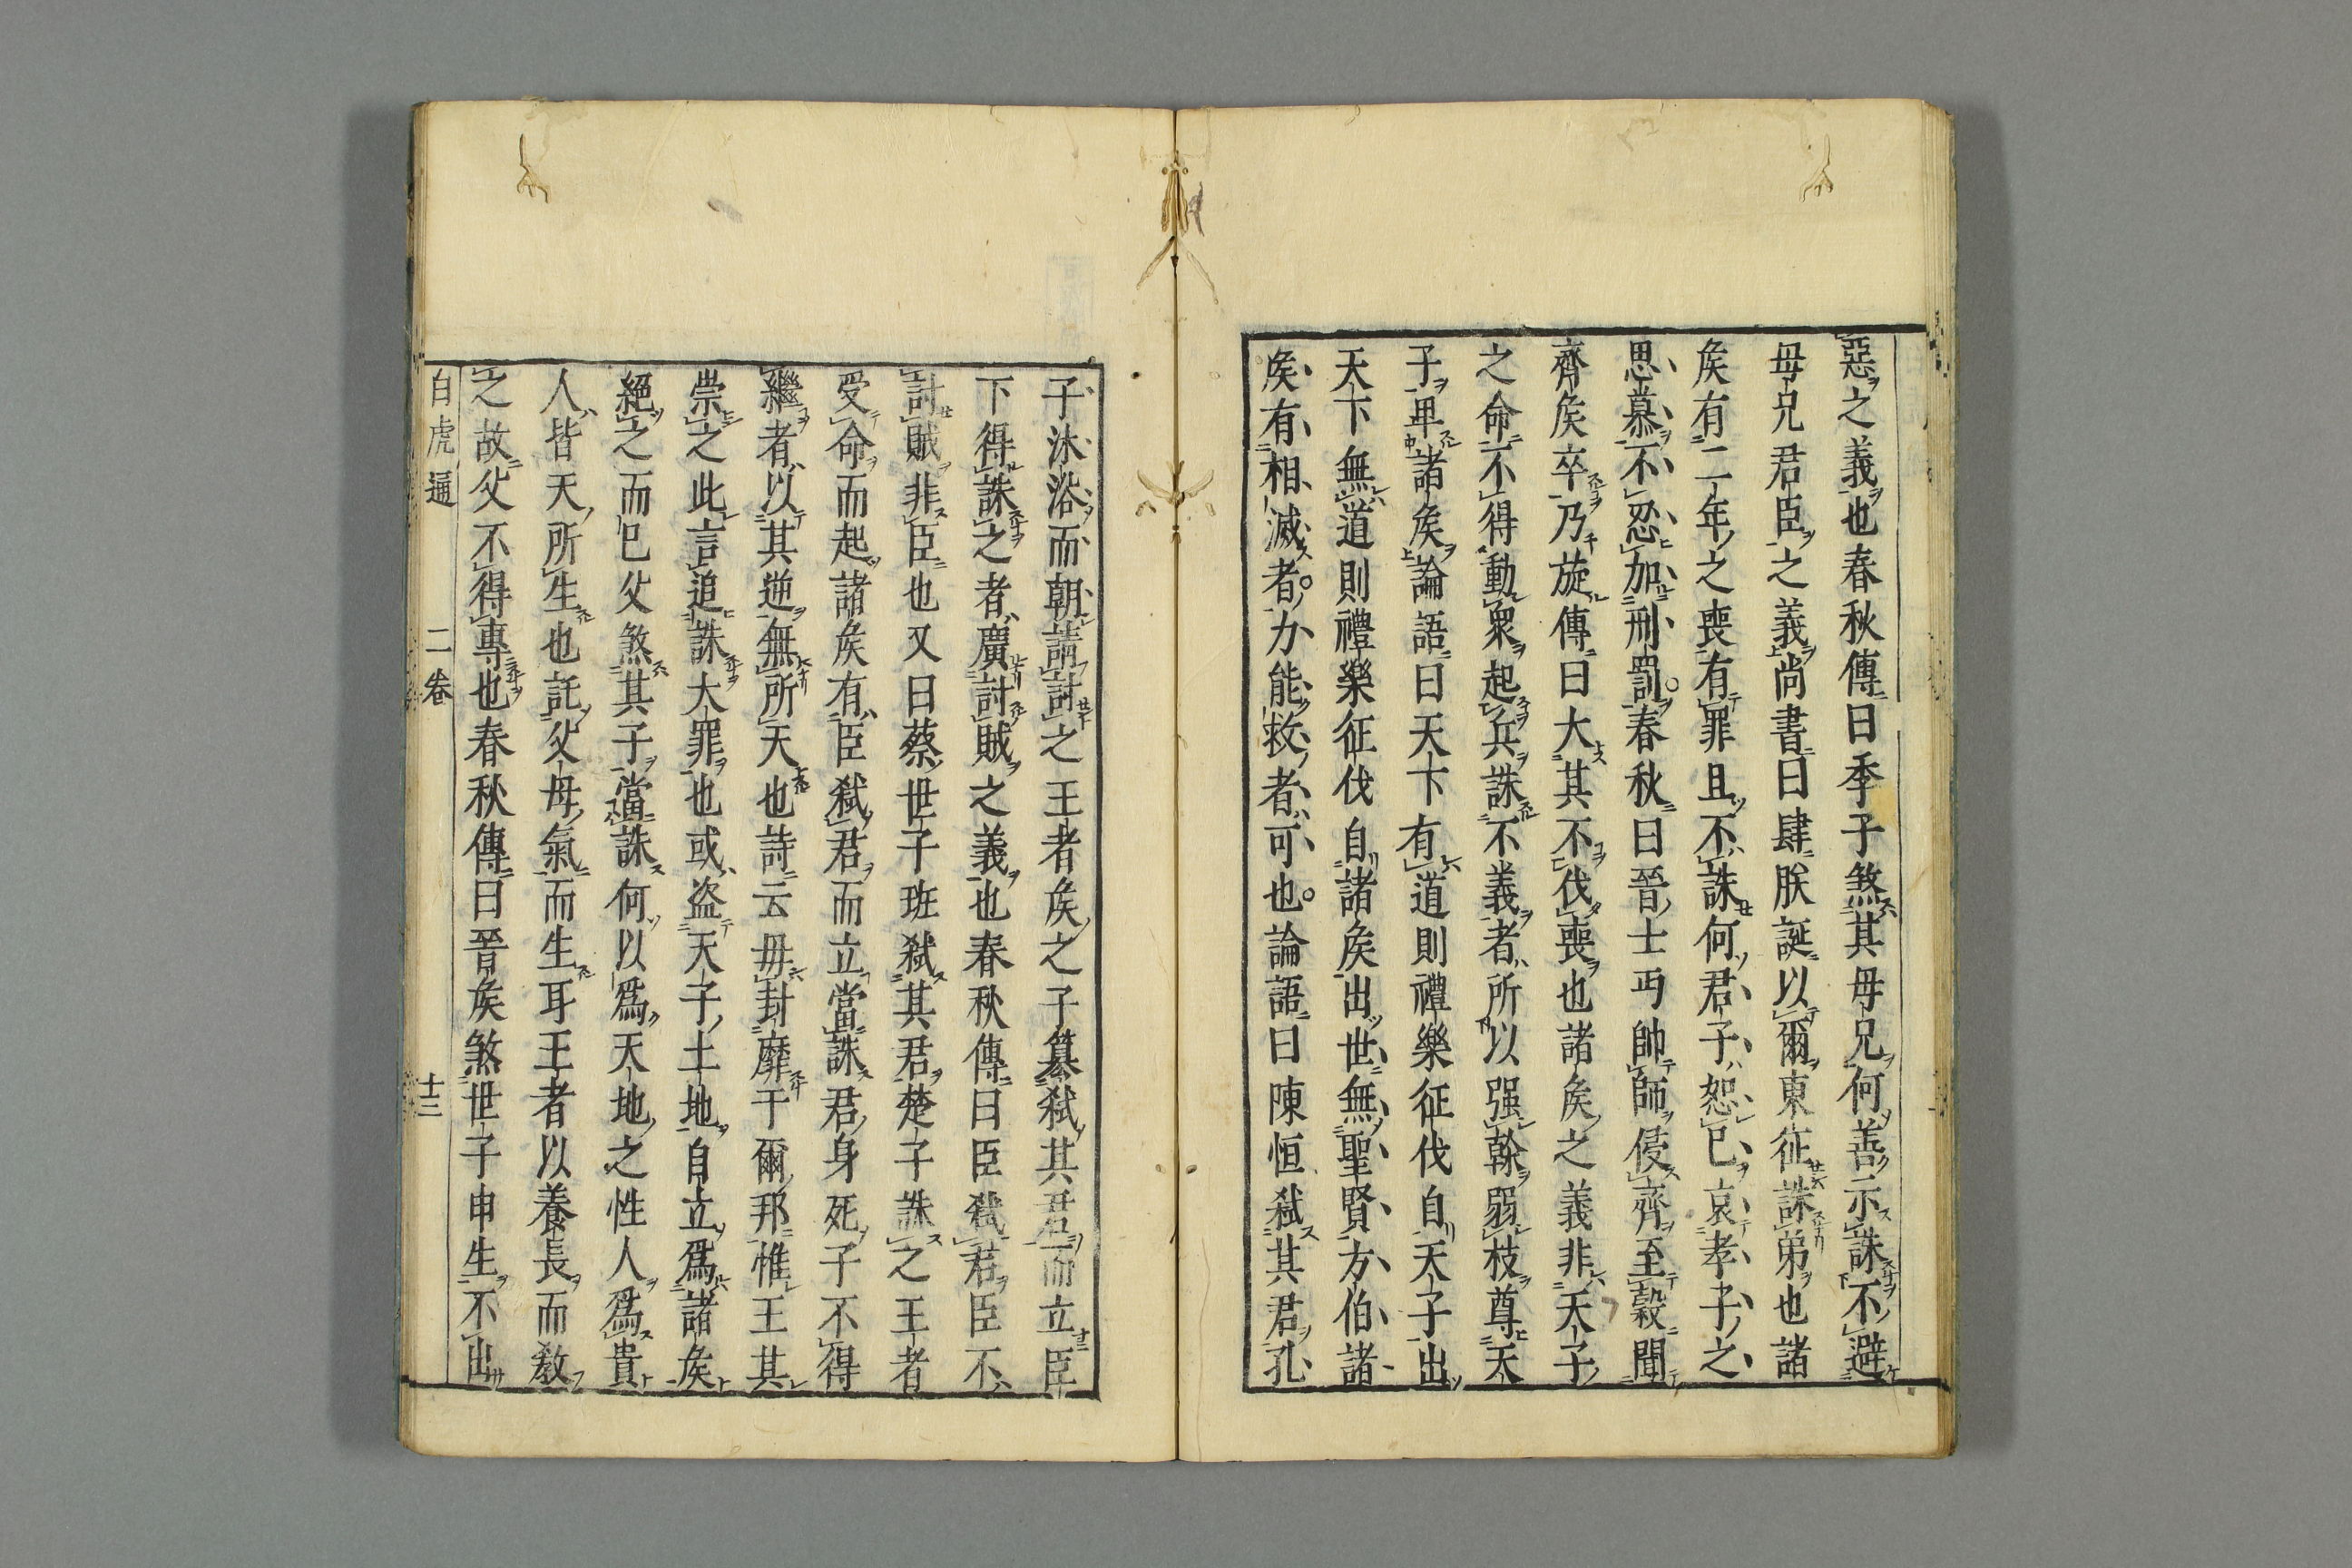 惡之義也春秋傳曰季子煞其母兄何善示誅不避
母兄君臣之義尚書曰肆朕誕以爾東征誅弟也諸
矦有二年之喪有罪且不誅何君子恕已哀孝子之
思慕不忍加刑罰春秋曰晉士丐帥師侵齊至穀聞
齊矦卒乃旋傳曰大其不伐喪也諸矦之義非天子
之命不得動衆起兵誅不義者所以强幹弱枝尊天
子卑諸矦論語曰天下有道則禮樂征伐自天子出
天下無道則禮樂征伐自諸矦出世無聖賢方伯諸
矦有相滅者力能救者可也論語曰陳恒弑其君孔
子沐浴而朝請討之王者矦之子簒弑其君而立臣
下得誅之者廣討賊之義也春秋傳曰臣弑君臣不
討賊非臣也又曰蔡世子班弑其君楚子誅之王者
受命而起諸矦有臣弑君而立當誅君身死子不得
繼者以其逆無所天也詩云毋封靡于爾邦惟王其
崇之此言追誅大罪也或盗天子土地自立爲諸矦
絕之而已父煞其子當誅何以爲天地之性人爲貴
人皆天所生也託父母氣而生耳王者以養長而敎
之故父不得專也春秋傳曰晉矦煞世子申生不出
白虎通 二卷 十三